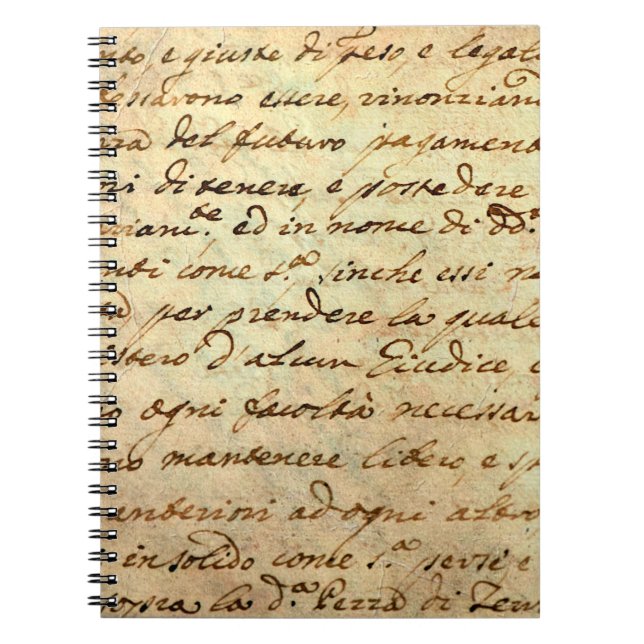 nto, e giuste di peso, e legal
essarono essere, rinonziano
rza del futuro pagamen
ni di tenere e possedere
viam.te ed in nome di dd.i
nti come s.a sinche essi n
tà per prendere la quale
istero d'alcun Giudice,
o ogni facoltà necessar
no mantenere libero, e
anteriori ad ogni altro
i in solido come s.a per se e
sopra la d.a Pezza di Terr